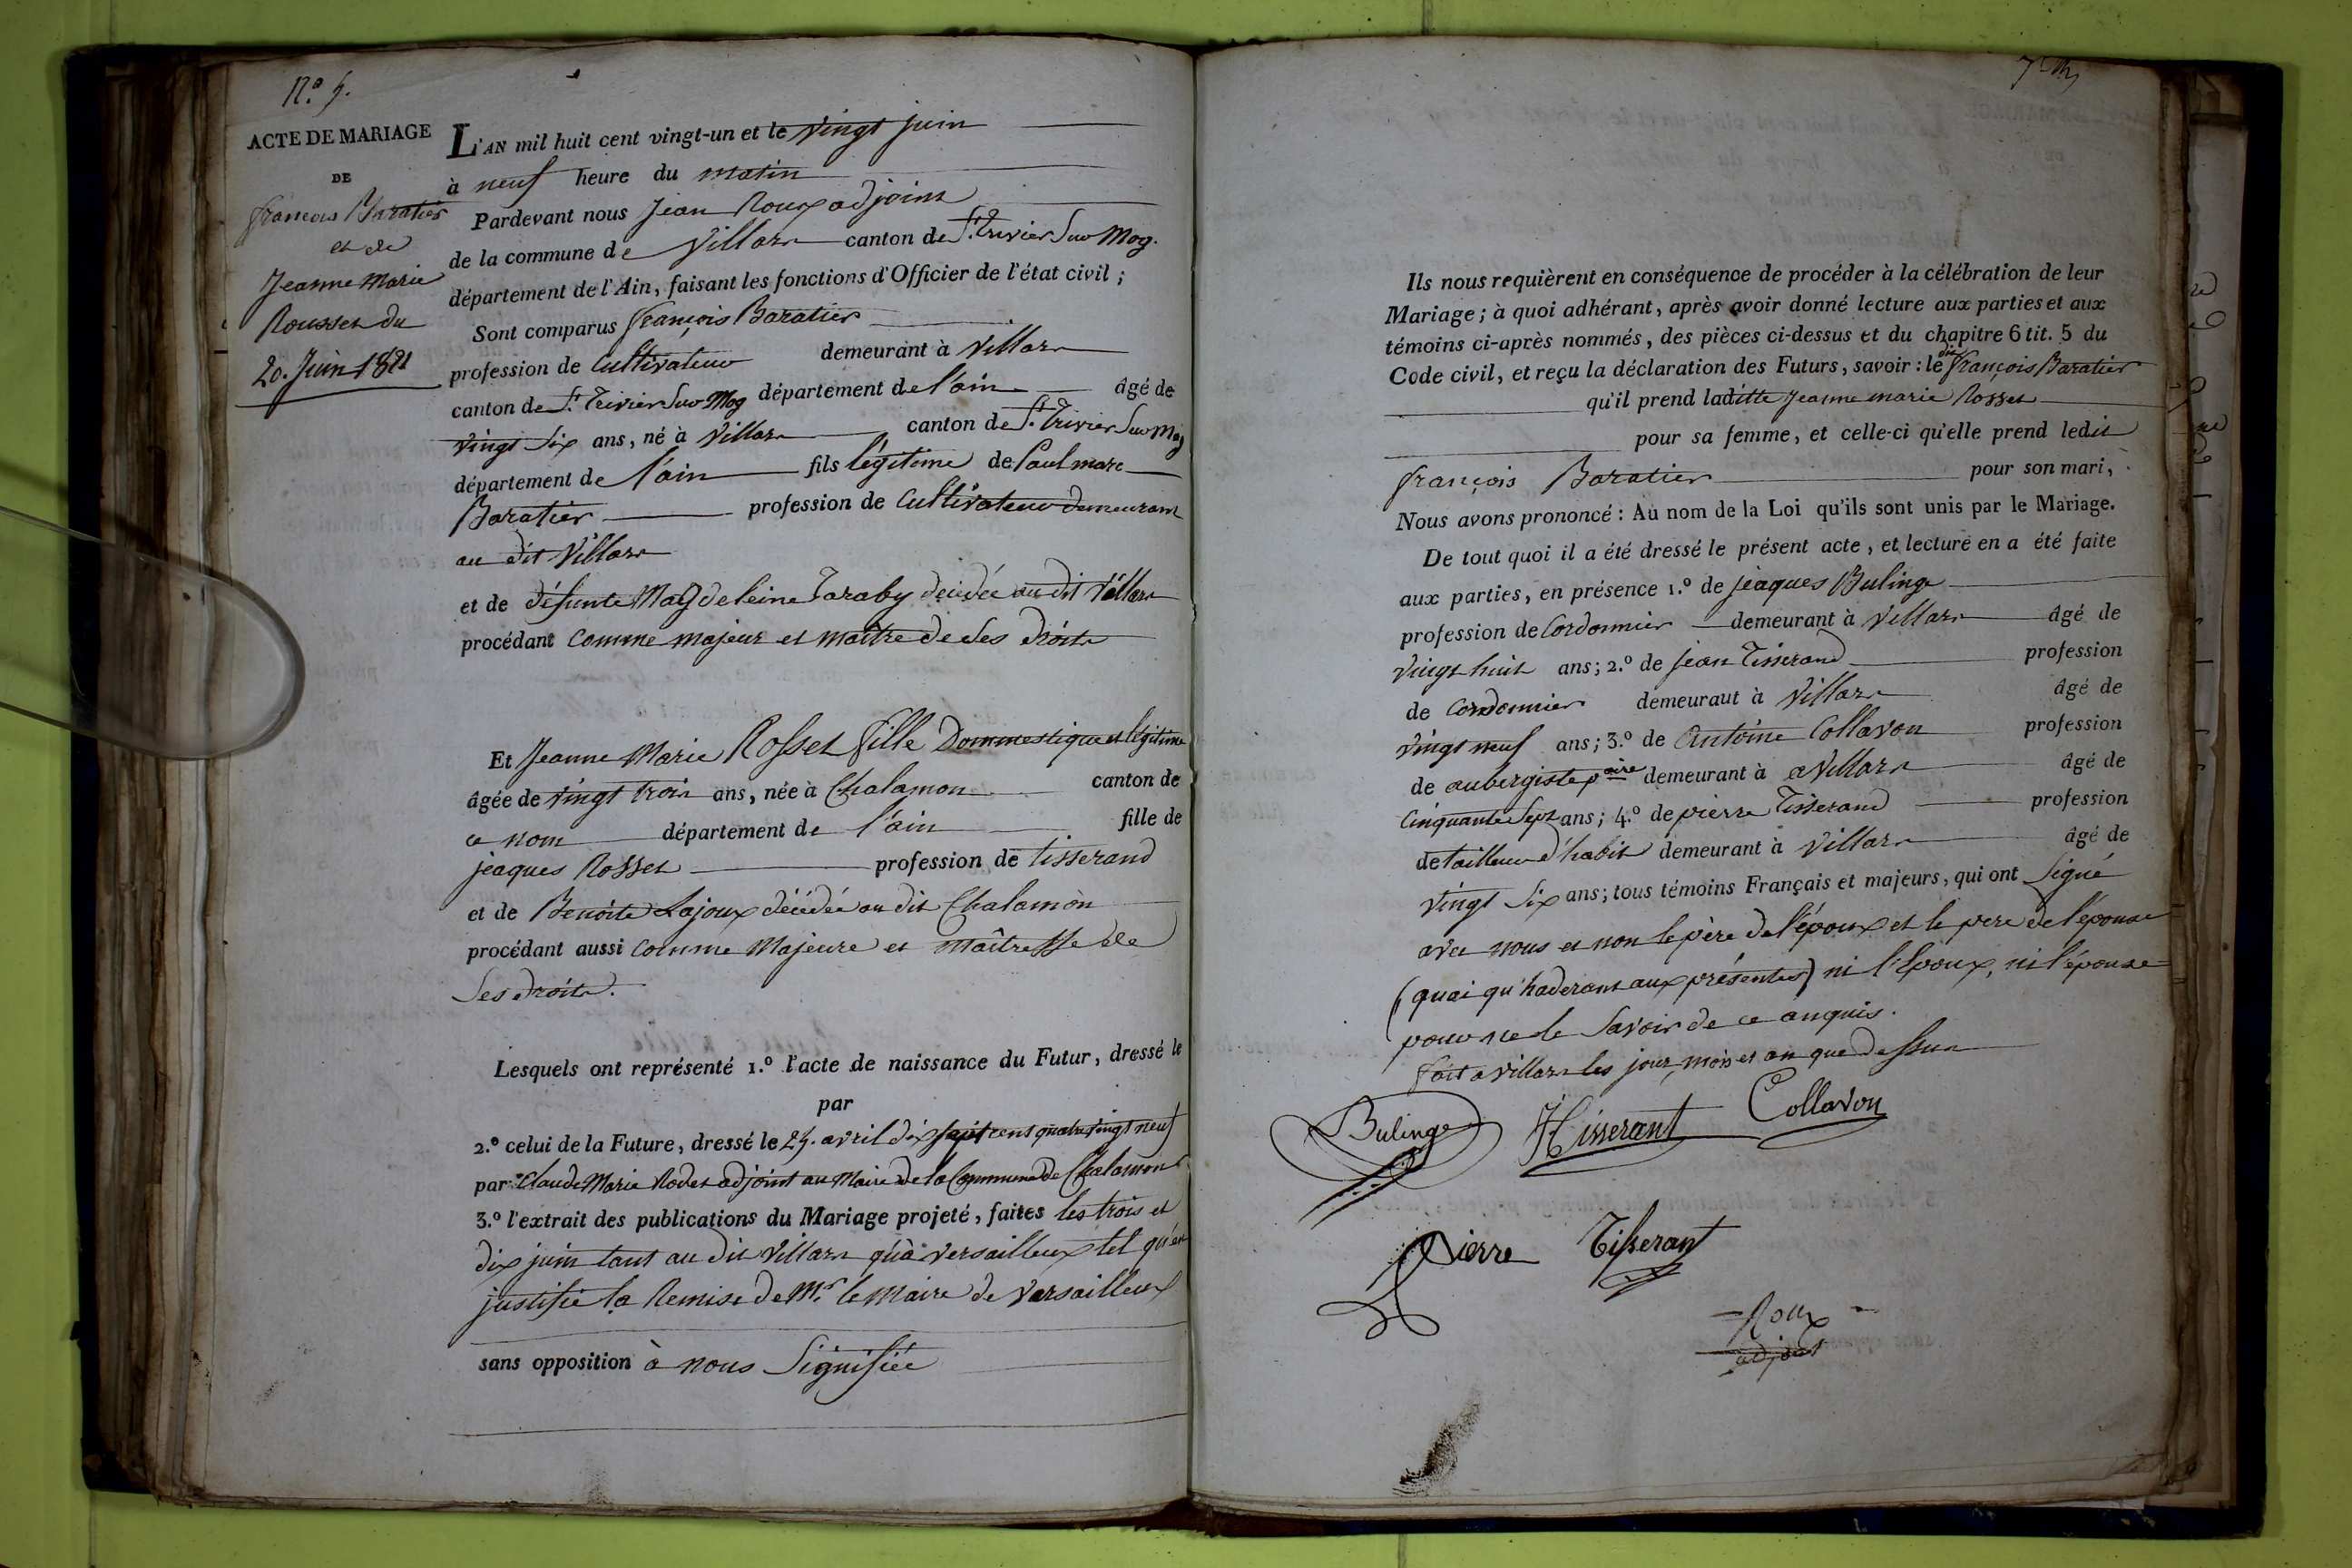 N.º 5.
ACTE DE MARIAGE
DE
françois Baratier
et de
Jeanne Marie
Rousset du
20. Juin 1821
L'AN mil huit cent vingt-un et le vingt juin
à neuf heure du matin
Pardevant nous Jean Roux adjoint
de la commune de Villars canton de St. Trivier Sur Mog.
département de l'Ain, faisant les fonctions d'Officier de l'état civil ;
Sont comparus françois Baratier
profession de Cultivateur demeurant à Villars
canton de St. Trivier Sur Mog département de l'ain âgé de
vingt six ans, né à Villars canton de St. Trivier Sur Mog
département de l'ain fils légitime de Paul marc
Baratier profession de Cultivateur demeurant
au dit Villars
et de défunte Magdeleine Taraby décédée au dit Villars
procédant Comme majeur et maître de Ses droits
Et Jeanne Marie Rosset fille Dommestique et légitime
âgée de vingt trois ans, née à Chalamon canton de
ce nom département de l'ain fille de
jeaques Rosset profession de tisserand
et de Benoite Lajoux décédée au dit Chalamon
procédant aussi Comme Majeure et maîtresse de
Ses droits.
Lesquels ont représenté 1.º l'acte de naissance du Futur, dressé le
par
2.º celui de la Future, dressé le 25. avril dix sept cent quatre vingt neuf
par Claude Marie Rodet adjoint au Maire de la Commune de Chalamont
3.º l'extrait des publications du Mariage projeté, faites les trois et
dix juin tant au dit Villars qu'à versailleux tel qu'en
justifie la Remise de Mr. le Maire de Versailleux
sans opposition à nous Signifiée
Ils nous requièrent en conséquence de procéder à la célébration de leur
Mariage ; à quoi adhérant, après avoir donné lecture aux parties et aux
témoins ci-après nommés, des pièces ci-dessus et du chapitre 6 tit. 5 du
Code civil, et reçu la déclaration des Futurs, savoir : le dit françois Baratier
qu'il prend laditte Jeanne marie Rosset
pour sa femme, et celle-ci qu'elle prend ledit
françois Baratier pour son mari,
Nous avons prononcé : Au nom de la Loi qu'ils sont unis par le Mariage.
De tout quoi il a été dressé le présent acte, et lecture en a été faite
aux parties, en présence 1.º de jeaques Bulinge
profession de Cordonnier demeurant à Villars âgé de
vingt huit ans ; 2.º de jean Tisserand profession
de Cordonnier demeuraut à Villars âgé de
vingt neuf ans ; 3.º de Antoine Collavon profession
de aubergiste p aire demeurant à a Villars âgé de
Cinquante Sept ans ; 4.º de pierre Tisserand profession
de tailleur d'habit demeurant à Villars âgé de
vingt Six ans ; tous témoins Français et majeurs, qui ont Signé
avec nous et non le père de l'époux et le père de l'épouse
(quai qu'haderant aux présentes) ni l'Epoux, ni l'épouse
pour ne le Savoir de ce anquis.
fait a Villars les jour, mois et an que dessus
Bulinge
JTisserant
Collavon
Pierre Tisserant
Roux
adjoint